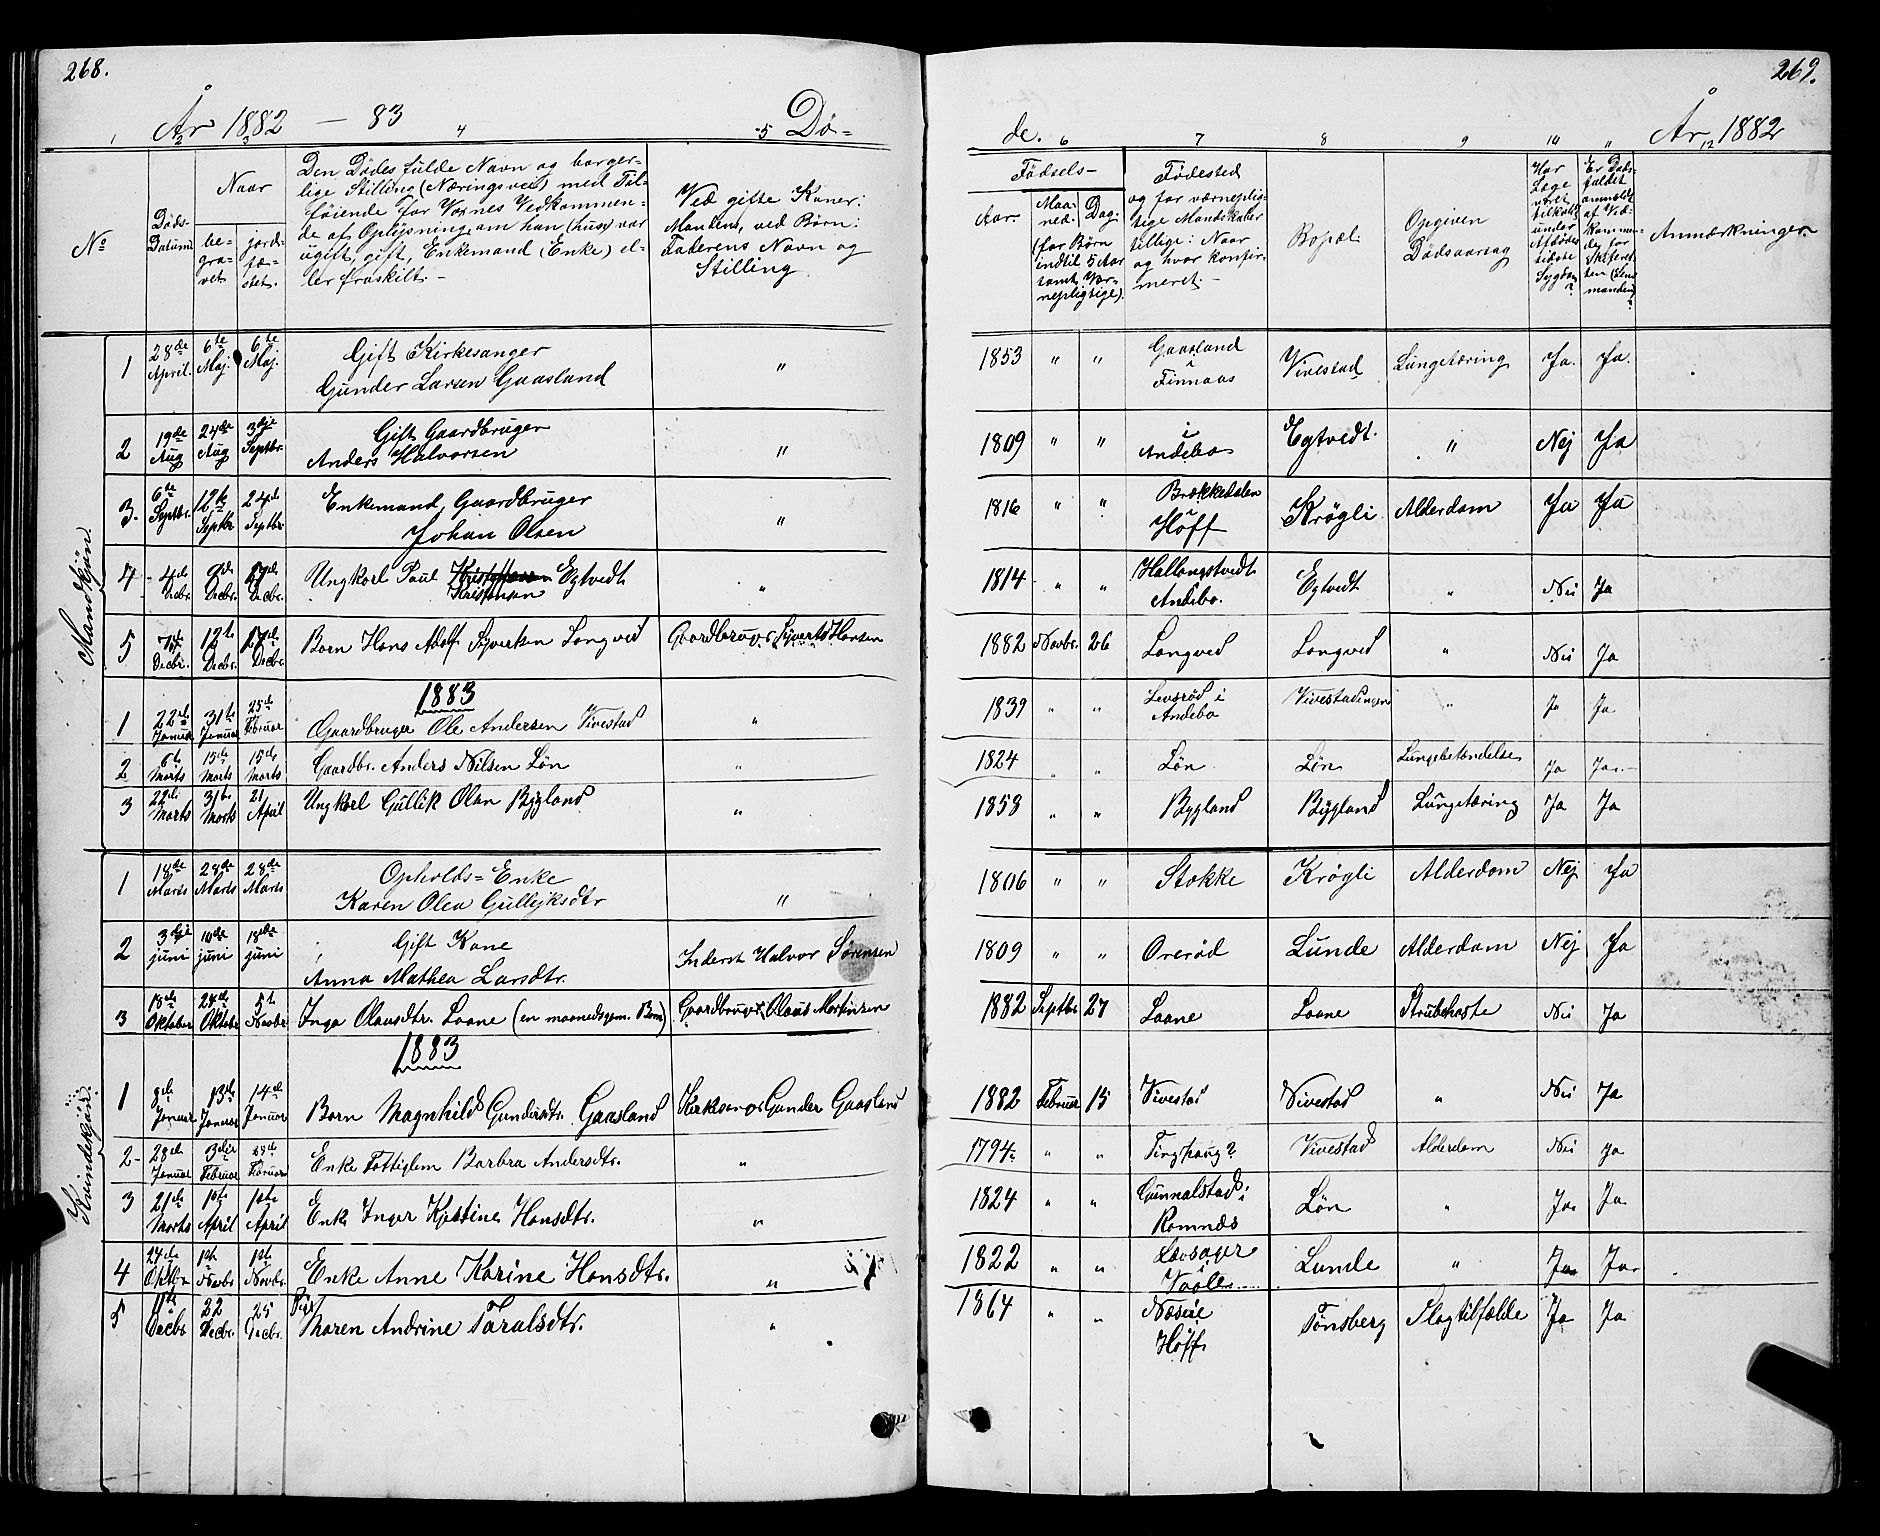 268.
År 1882 — 83
Dø-
1 2 3 4 5
No
Døds-
Datum
Naar
be-
gra-
vet
jord-
fæ-
stet.
Den Dødes fulde Navn og borger-
lige Stilling (Næringsvei) med Til-
føiende for Voxnes Vedkommen-
de af Oplysning, om han (hun) var
ugift, gift, Enkemand (Enke) el-
ler fraskilt.-
Ved gifte Koner:
Mandens, ved Børn:
Faderens Navn og
Stilling
Mandkjøn.
1 28de April. 6te Maj. 6te Maj. Gift Kirkesanger
Gunder Larsen Gaasland "
2 19de Aug 24de Aug 3dje Septbr. Gift Gaardbruger
Anders Halvorsen "
3. 6te Septbr. 12te Septbr 24de Septbr. Enkemand, Gaardbruger
Johan Olsen "
4 4de Decbr. 9de Decbr. 17de Decbr. Ungkarl Paul Kristoffersen Egtvedt
Kristensen "
5 7de Decbr. 12te Decbr. 17de Decbr. Barn Hans Adolf Syvertsen Langved Gaardbruger Syvert Hansen
1883
1 22de Januar 31te Januar 25de Februar Gaardbruger Ole Andersen Vivestad "
2 6te Marts 15de Marts 15de Marts Gaardbr. Anders Nilsen Løn "
3 22de Marts 31te Marts 21 April Ungkarl Gullik Olsen Bygland "
Kvindekjøn.
1 18de Marts 28de Marts 28de Marts Opholds-Enke
Karen Olea Gullejksdtr "
2 3dje juni 10de juni 18de juni Gift Kone
Anna Mathea Larsdtr. Inderst Halvor Sørensen
3 18de Oktober 24de Oktober 5te Novbr Inga Olausdtr. Laane (en maanedsgm. Barn) Gaardbruger Olaus Martinsen
1883
1 8de Januar 13de Januar 14de Januar Barn Magnhild Gundersdtr. Gaasland Kirkesanger Gunder Gaasland
2- 28de Januar 3die Februar Februar Enke Fattiglem Barbra Andersdtr. "
3 21de Marts 1ste April 1ste April Enke Inger Kjestine Hansdtr. "
4 24de Oktbr 1ste Novbr. 1ste Novbr. Enke Anne Karine Hansdtr. "
5 11te Decbr 22 Decbr. 25 Decbr. Pige
Maren Andrine Taralsdtr. "
269.
de.
År 1882
6 7 8 9 10 11 12
Fødsels-
Aar.
Maa-
ned.
Dag.
(for Børn
indtil 5 Aar
samt Vær-
nepligtige).
Fødested
og for værneplig-
tige Mandskaber
tillige: Naar
og hvor konfir-
meret.-
Bopæl
Opgiven
Dødsaarsag
Har
Læge
været
tilkaldt
under
Afdødes
sidste
Sygdom
?
Er Døds-
faldet
anmeldt
af Ved-
kommen-
de for
Skifteret-
ten (Lens-
manden)
?
Anmærkninger.
1853 " " Gaasland
i
Finnaas Vivestad Lungetæring Ja. Ja.
1809 " " i
Andebo Egtvedt. " Nej Ja
1816 " " Brækkedalen
i
Hoff Krøgli Alderdom Ja Ja
1814 " " Hallangstvedt
Andebo. Egtvedt " Nei Ja
1882 Novbr. 26 Langved Langved " Nei Ja
1839 " " Levsrød i
Andebo Vivestadingen " Ja Ja
1824 " " Løn Løn Lungebetændelse Ja Ja.
1858 " " Bygland Bygland Lungetæring Ja Ja
1806 " " Stokke Krøgli Alderdom Nej Ja
1809 " " Orerød Lunde Alderdom Nej Ja
1882 Septbr 27 Laane Laane Strubehoste Nei Ja
1882 Februar 15 Vivestad Vivestad " Nei Ja
1794 " " Tinghaug? Vivestad Alderdom Nei Ja
1824 " " Gunnalstad i
Ramnæs Løn " Ja. Ja
1822 " " Løvsager
i
Vaale Lunde " Ja Ja.
1864 " " Næs i
Hoff Tønsberg Slagtilfælde Ja Ja